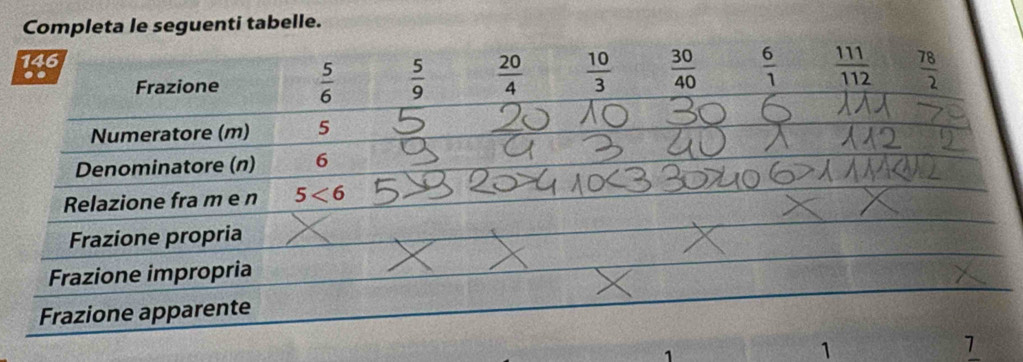 Completa le seguenti tabelle.
146
Frazione 5/6 5/9 20/4 10/3 30/40 6/1 111/112 78/2
Numeratore (m) 5 5 20 10 30 6 111
Denominatore (n) 6 9 4 3 40 1 112 2
Relazione fra m e n 5<6 5>9 20>4 10<3 30>40 6>1 111<112
Frazione propria X X X
Frazione impropria X X X
Frazione apparente X X
1 1 7